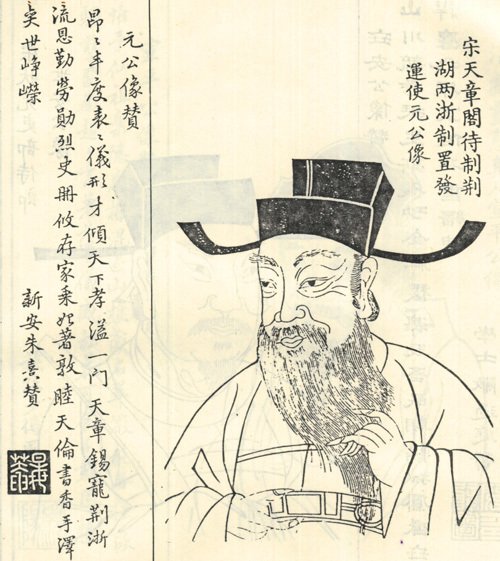 宋天章閣待制荆
湖两浙制置發
運使元公像
元公像赞
昂〻丰度表〻儀形才傾天下孝溢一門天章錫寵荆浙
流恩勤勞勛烈史冊攸存家乗昭著敦睦天倫書香手澤
奕世峥嶸
新安朱熹赞